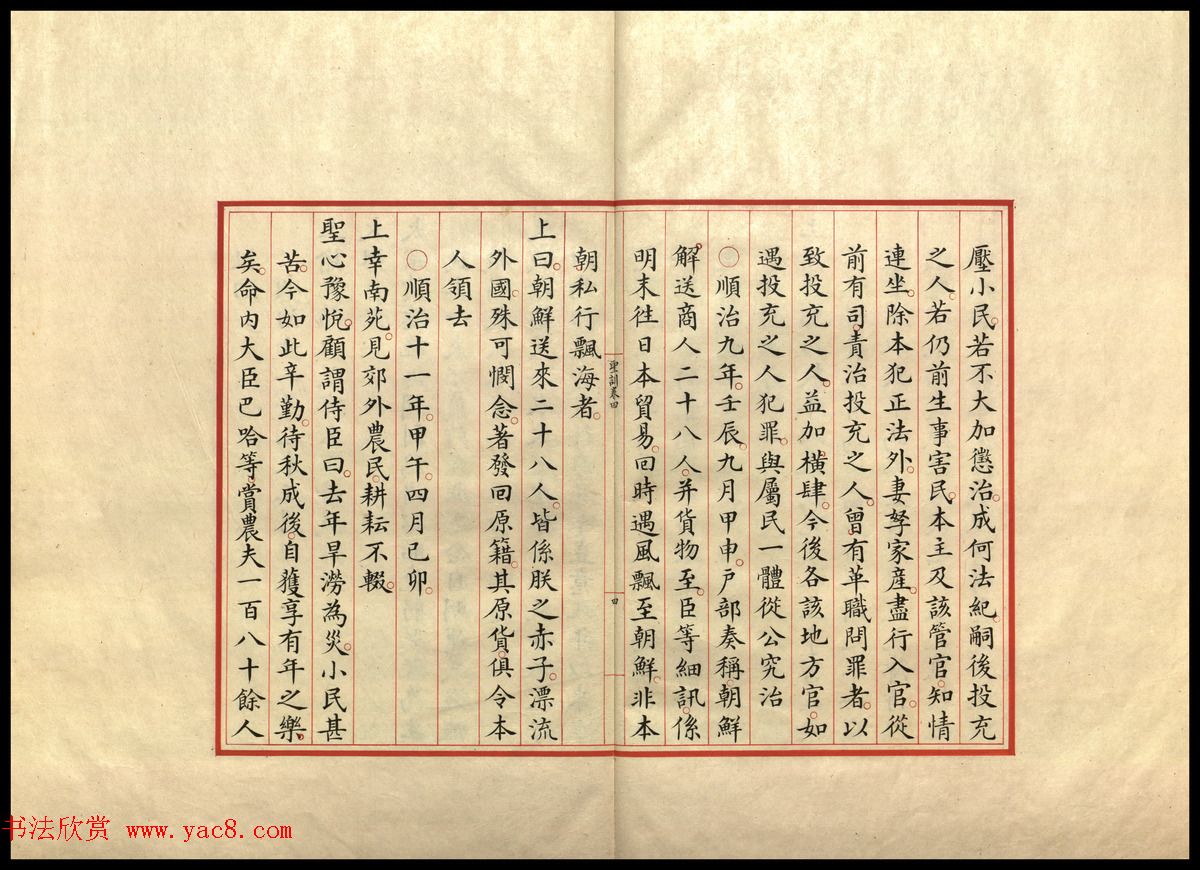 壓小民。若不大加懲治。成何法紀。嗣後投充
之人。若仍前生事害民。本主及該管官。知情
連坐。除本犯正法外。妻孥家産。盡行入官。從
前有司。責治投充之人。曾有革職問罪者。以
致投充之人。益加橫肆。今後各該地方官。如
遇投充之人犯罪。與屬民一體從公究治
○順治九年。壬辰。九月甲申。戶部奏稱。朝鮮
解送商人二十八人。并貨物至。臣等細訊。係
明末徃日本貿易。囘時遇風飄至朝鮮。非本
聖訓卷四
四
朝私行飄海者。
上曰。朝鮮送來二十八人。皆係朕之赤子。漂流
外國。殊可憫念。著發囘原籍。其原貨。俱令本
人領去
○順治十一年。甲午。四月己卯。
上幸南苑。見郊外農民。耕耘不輟。
聖心豫悅。顧謂侍臣曰。去年旱澇為災。小民甚
苦。今如此辛勤。待秋成後。自獲享有年之樂
矣。命內大臣巴哈等。賞農夫一百八十餘人
书法欣赏 www.yac8.com